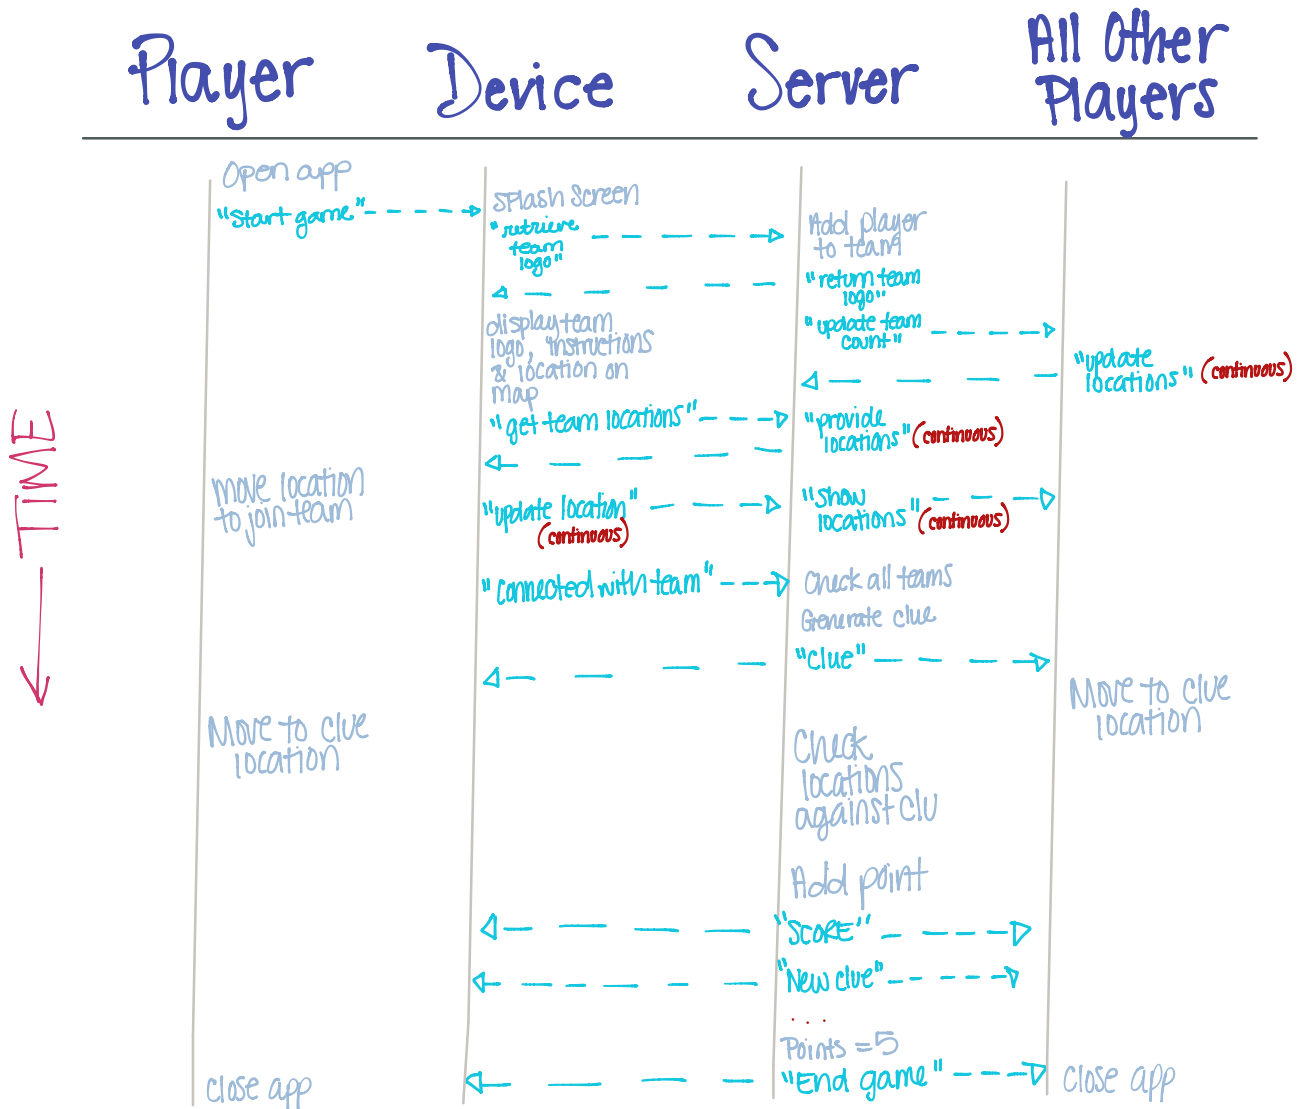 Player
Device
Server
All Other
Players
Open app
"Start game"
Splash Screen
"retrieve
team
logo"
Add player
to team
"return team
logo"
"update team
count"
display team
logo, instructions
& location on
map
"update
locations" (continuous)
"get team locations"
"provide
locations" (continuous)
TIME
move location
to join team
"update location"
(continuous)
"show
locations" (continuous)
"connected with team"
Check all teams
Generate clue
"clue"
Move to clue
location
Move to clue
location
Check
locations
against clu
Add point
"SCORE"
"New clue"
...
Points = 5
"End game"
Close app
Close app